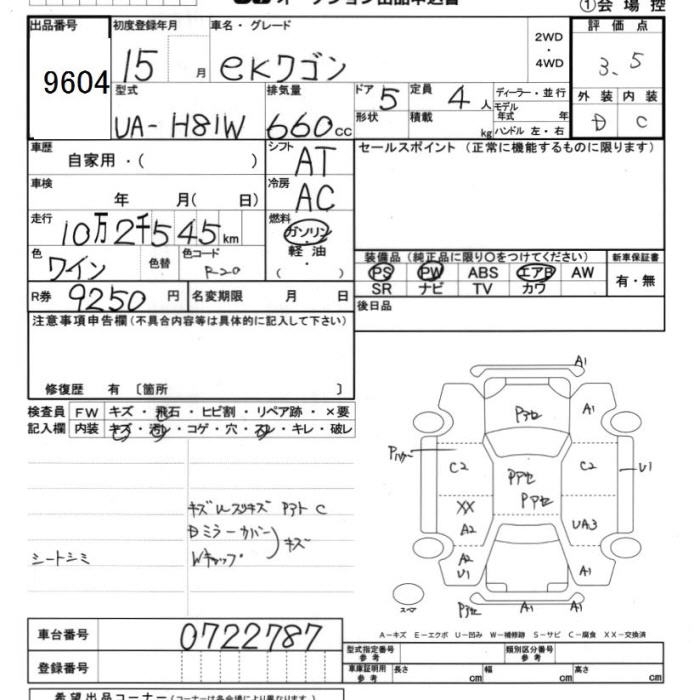 ①会場控
出品番号 初度登録年月 車名・グレード 評価点
9604 15 月 ekワゴン 2WD
・
4WD 3.5
型式 排気量 ドア 定員 ディーラー・並行 外装 内装
UA-H81W 660cc 5 4人 モデル年式 年 D C
形状 積載 kg ハンドル 左・右
車歴 自家用・( ) シフト AT セールスポイント (正常に機能するものに限ります)
車検 年 月( 日) 冷房 AC
走行 10万2千545km 燃料 ガソリン・軽油・( )
色 ワイン 色替 色コード R20
装備品(純正品に限り○をつけてください) 新車保証書
PS PW ABS エアB AW 有・無
SR ナビ TV カワ
R券 9250円 名変期限 月 日 後日品
注意事項申告欄(不具合内容等は具体的に記入して下さい)
修復歴 有 〔箇所 〕
検査員 FW キズ・飛石・ヒビ割・リペア跡・×要
記入欄 内装 キズ・汚レ・コゲ・穴・スレ・キレ・破レ
A1
Pアセ A1
C2 C2 U1
PアセPアセ
XX
A2 UA3
A2
U1 A1
Pアセ A1 A1
シートシミ
Dミラーカバー キズ
Wキャップ
A－キズ E－エクボ U－凹み W－補修跡 S－サビ C－腐食 XX－交換済
車台番号 0722787
型式指定番号参考 類別区分番号参考
登録番号 車庫証明用参考 長さ cm 幅 cm 高さ cm
希望出品コーナー(コーナーは各会場により異なります)